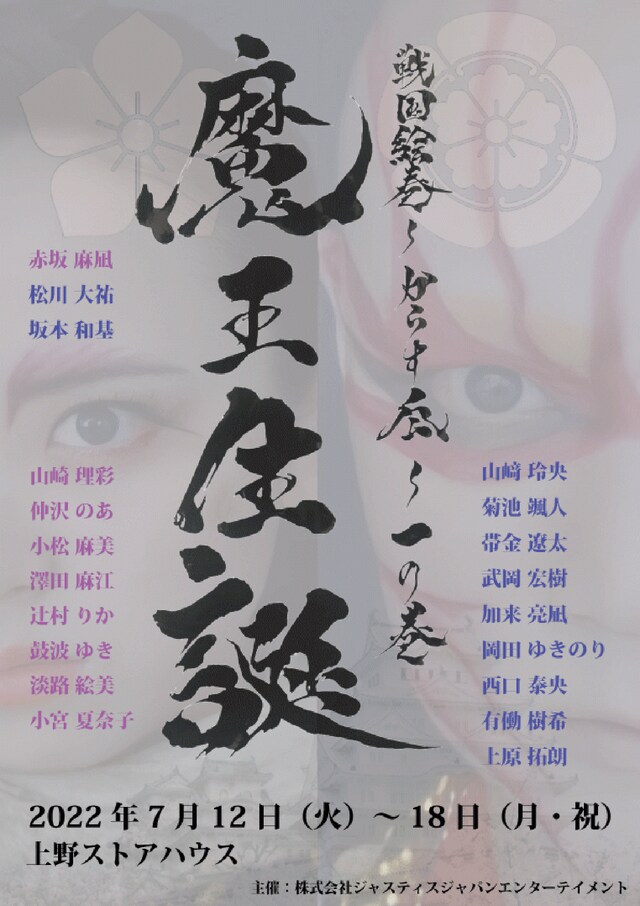 戦国絵巻～からす凪～一の巻
魔王生誕
赤坂 麻凪
松川 大祐
坂本 和基
山崎 理彩
仲沢 のあ
小松 麻美
澤田 麻江
辻村 りか
鼓波 ゆき
淡路 絵美
小宮 夏奈子
山﨑 玲央
菊池 颯人
帯金 遼太
武岡 宏樹
加来 亮凪
岡田 ゆきのり
西口 泰央
有働 樹希
上原 拓朗
2022年7月12日（火）～18日（月・祝）
上野ストアハウス
主催：株式会社ジャスティスジャパンエンターテイメント